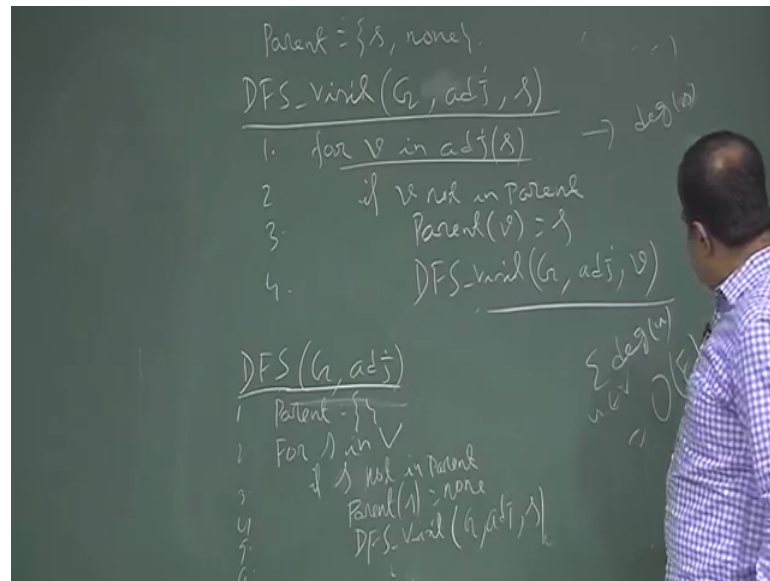 Parent = {s, none}.
DFS_visit(G, adj, s)
1. for v in adj(s) → deg(v)
2 if v not in Parent
3. Parent(v) = s
4. DFS_visit(G, adj, v)
Σ deg(u)
u ∈ V
= O(E)
DFS(G, adj)
1 Parent = {}
2 For s in V
3 if s not in Parent
4 Parent(s) = none
5. DFS_visit(G, adj, s)
6